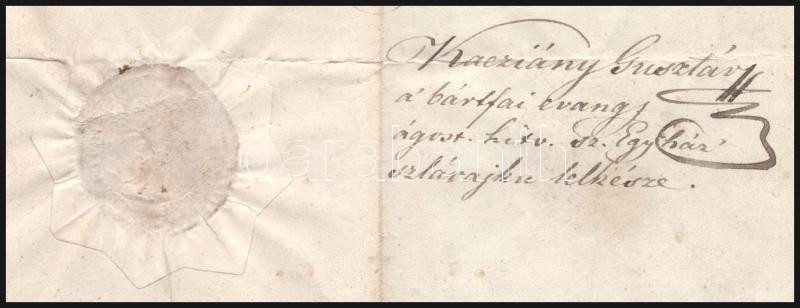 Kacziány Gusztáv
a bártfai evangj
ágost. hitv. sz. Egyház
szlávajku lelkésze.
darabanth.com